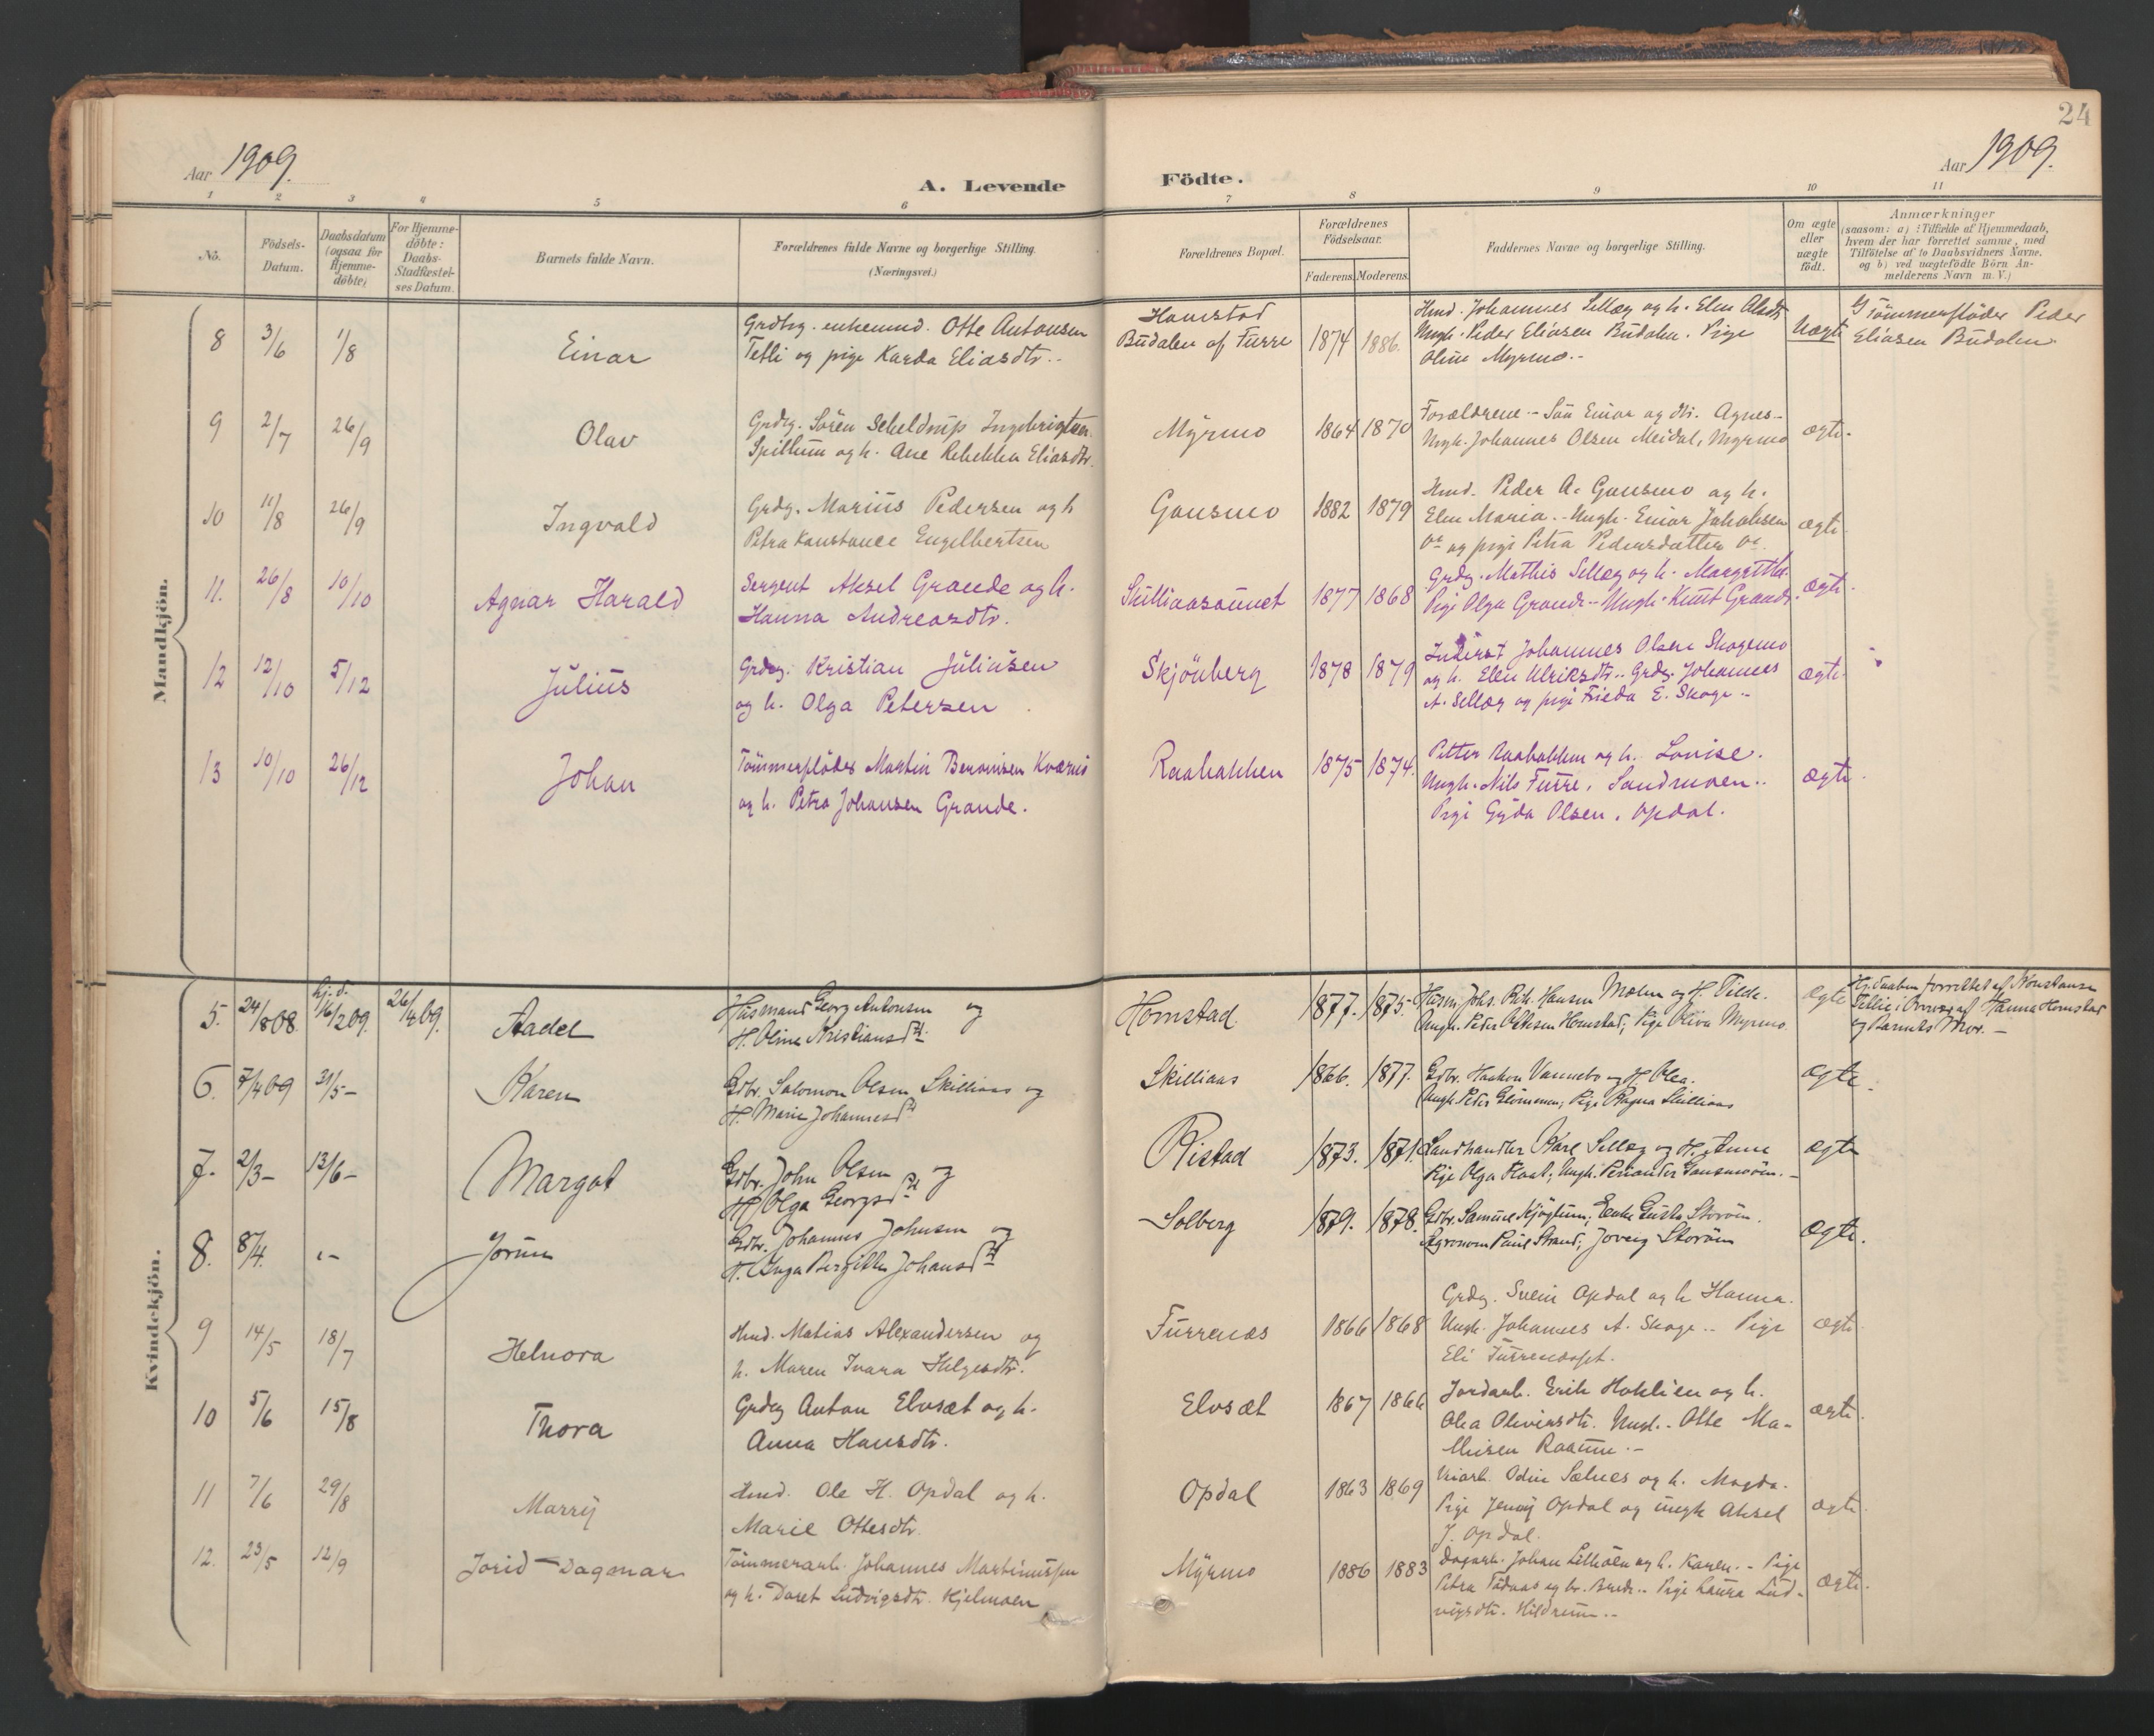 24
Aar 1909.
A. Levende Födte.
Aar 1909.
1 2 3 4 5 6 7 8 9 10 11
No.
Födsels-Datum.
Daabsdatum (ogsaa for Hjemme-döbte)
For Hjemme-döbte: Daabs-Stadfæstel-ses Datum.
Barnets fulde Navn.
Forældrenes fulde Navne og borgerlige Stilling.
(Næringsvei.)
Forældrenes Bopæl.
Forældrenes Födselsaar.
Faderens. Moderens.
Faddernes Navne og borgerlige Stilling.
Om ægte eller uægte födt.
Anmærkninger
(saasom: a) i Tilfælde af Hjemmedaab,
hvem der har forrettet samme, med
Tilföielse af to Daabsvidners Navne.
og b) ved uægtefödte Börn An-
melderens Navn m. V.)
Mandkjön.
8 3/6 1/8 Einar
Grdbrg. enkemnd. Otte Antonsen
Tetli og pige Karda Eliasdtr.
Homstad
Búdalen af Fürre 1874 1886.
Hmd. Johannes Sellæg og h. Elen
Ungk. Peder Eliasen Búdalen. Pige
Oline Myrmo.-
Uægte
Tömmerflöder Peder
Eliasen Búdalen
9 2/7 26/9 Olav
Grdbg. Sören Scheldrup Ingebrigtsen
Spillum og h. Ane Rebekka Eliasdtr.
Myrmo 1864 1870
Forældrene.- Sön Einar og dtr. Agnes-
Ungk. Johannes Olsen Meidal, Myrmo
ægte.
10 11/8 26/9 Ingvald
Grdbg. Marius Pedersen og h
Petra Konstance Engelbertsen
Gansmo 1882 1879
Hmd. Peder A. Gansmo og h.
Elen Maria.- Ungk. Einar Johansen
do og pige Petra Pedersdatter do.
ægte
11. 26/8 10/10 Agnar Harald
Sergent Aksel Grande og h.
Hanna Andreasdtr.
Skilliaasaunet 1877 1868
Grdbg. Mathis Sellæg og h. Margrethe.
Pige Olga Grande.- Ungk. Knut Grande.
ægte.
12 12/10 5/12 Július
Grdbg. Kristian Júliusen
og h. Olga Petersen
Skjönberg 1878 1879
Inderst Johannes Olsen Skogemo
og h. Elen Ulriksdtr.. Grdbg. Johannes
A. Sellæg og pige Frieda E. Skoge.-
ægte.
13 10/10 26/12 Johan
Tömmerflöder Martin Benonisen Kværnö
og h. Petra Johansen Grande.
Raabakken 1875 1874.
Petter Raabakken og h. Lovise.
Ungk. Nils Fürre, Sandmoen.
Pige Gyda Olsen, Opdal.
ægte.
Kvindekjön.
5. 24/8 08. hj. d. 16/2 09. 26/4 09. Aadel
Húsmand Georg Antonsen og
H. Oline Kristiansdtr.
Homstad 1877. 1875.
Húsm. Johs. Rik. Hansen Moen og H. Tilde.
Ungk. Peter Ottesen Homstad; Pige Oliva Myrmo
ægte
Hj.daaben forrettet af Konstanse
Tetlie, i Overvær af Hanna Homstad
og Barnets Mor.-
6. 7/4 09 31/5- Karen
Gdbr. Salomon Olsen Skilliaas og
H. Marie Johannesdtr
Skilliaas 1866. 1877.
Gdbr. Haakon Vannebo og H. Olea.
Ungk. Peter Glömmen; Pige Ragna Skilliaas
ægte.
7. 2/3- 13/6- Margot
Gdbr. John Olsen og
H. Olga Georgsdtr
Ristad 1873. 1871.
Landhandler Kare Sellæg og H. Anne
Pige Olga Flaat; Ungk. Periander Gansmoöen.
ægte
8. 8/4. "- Jorúnn
Gdbr. Johannes Johnsen og
H. Inga Bergitte Johansdtr
Solberg 1879. 1878.
Gdbr. Samuel Kjöglum; Enke Gusta Storöen.
Agronom Paul Strand; Joveig Storöen
ægte.
9 14/5 18/7 Helnora
Hmd. Matias Alexandersen og
h. Maren Ivara Helgesdtr.
Fürrenes 1866 1868
Grdbg. Svein Opdal og h Hanna.
Ungk. Johannes A. Skoge.. Pige
Eli
ægte
10 5/6 15/8 Thora
Grdbg Anton Elvsæt og h.
Anna Hansdtr.
Elvsæt 1867 1866
Jordarb. Erik Haklien og h.
Olea Oliviersdtr. Ungk.. Otte Ma-
thisen Raaum.-
ægte.
11 7/6 29/8 Marry
Hmd. Ole H. Opdal og h.
Marie Ottesdtr.
Opdal 1863 1869
Veiarb. Odin Sælnes og h. Magda.
Pige Jenny Opdal og ungk Aksel
J. Opdal.
ægte
12. 23/5 12/9 Jorid-Dagmar
Tömmerarb. Johannes Martinussen
og h. Doret Ludvigsdtr. Kjelmoen
Myrmo 1886 1883
Dagarb. Johan Lethöen og h. Karen.- Pige
Petra Tödaas og br. Brede.. Pige Laura Lud-
vigsdtr. Hildrem.-
ægte.